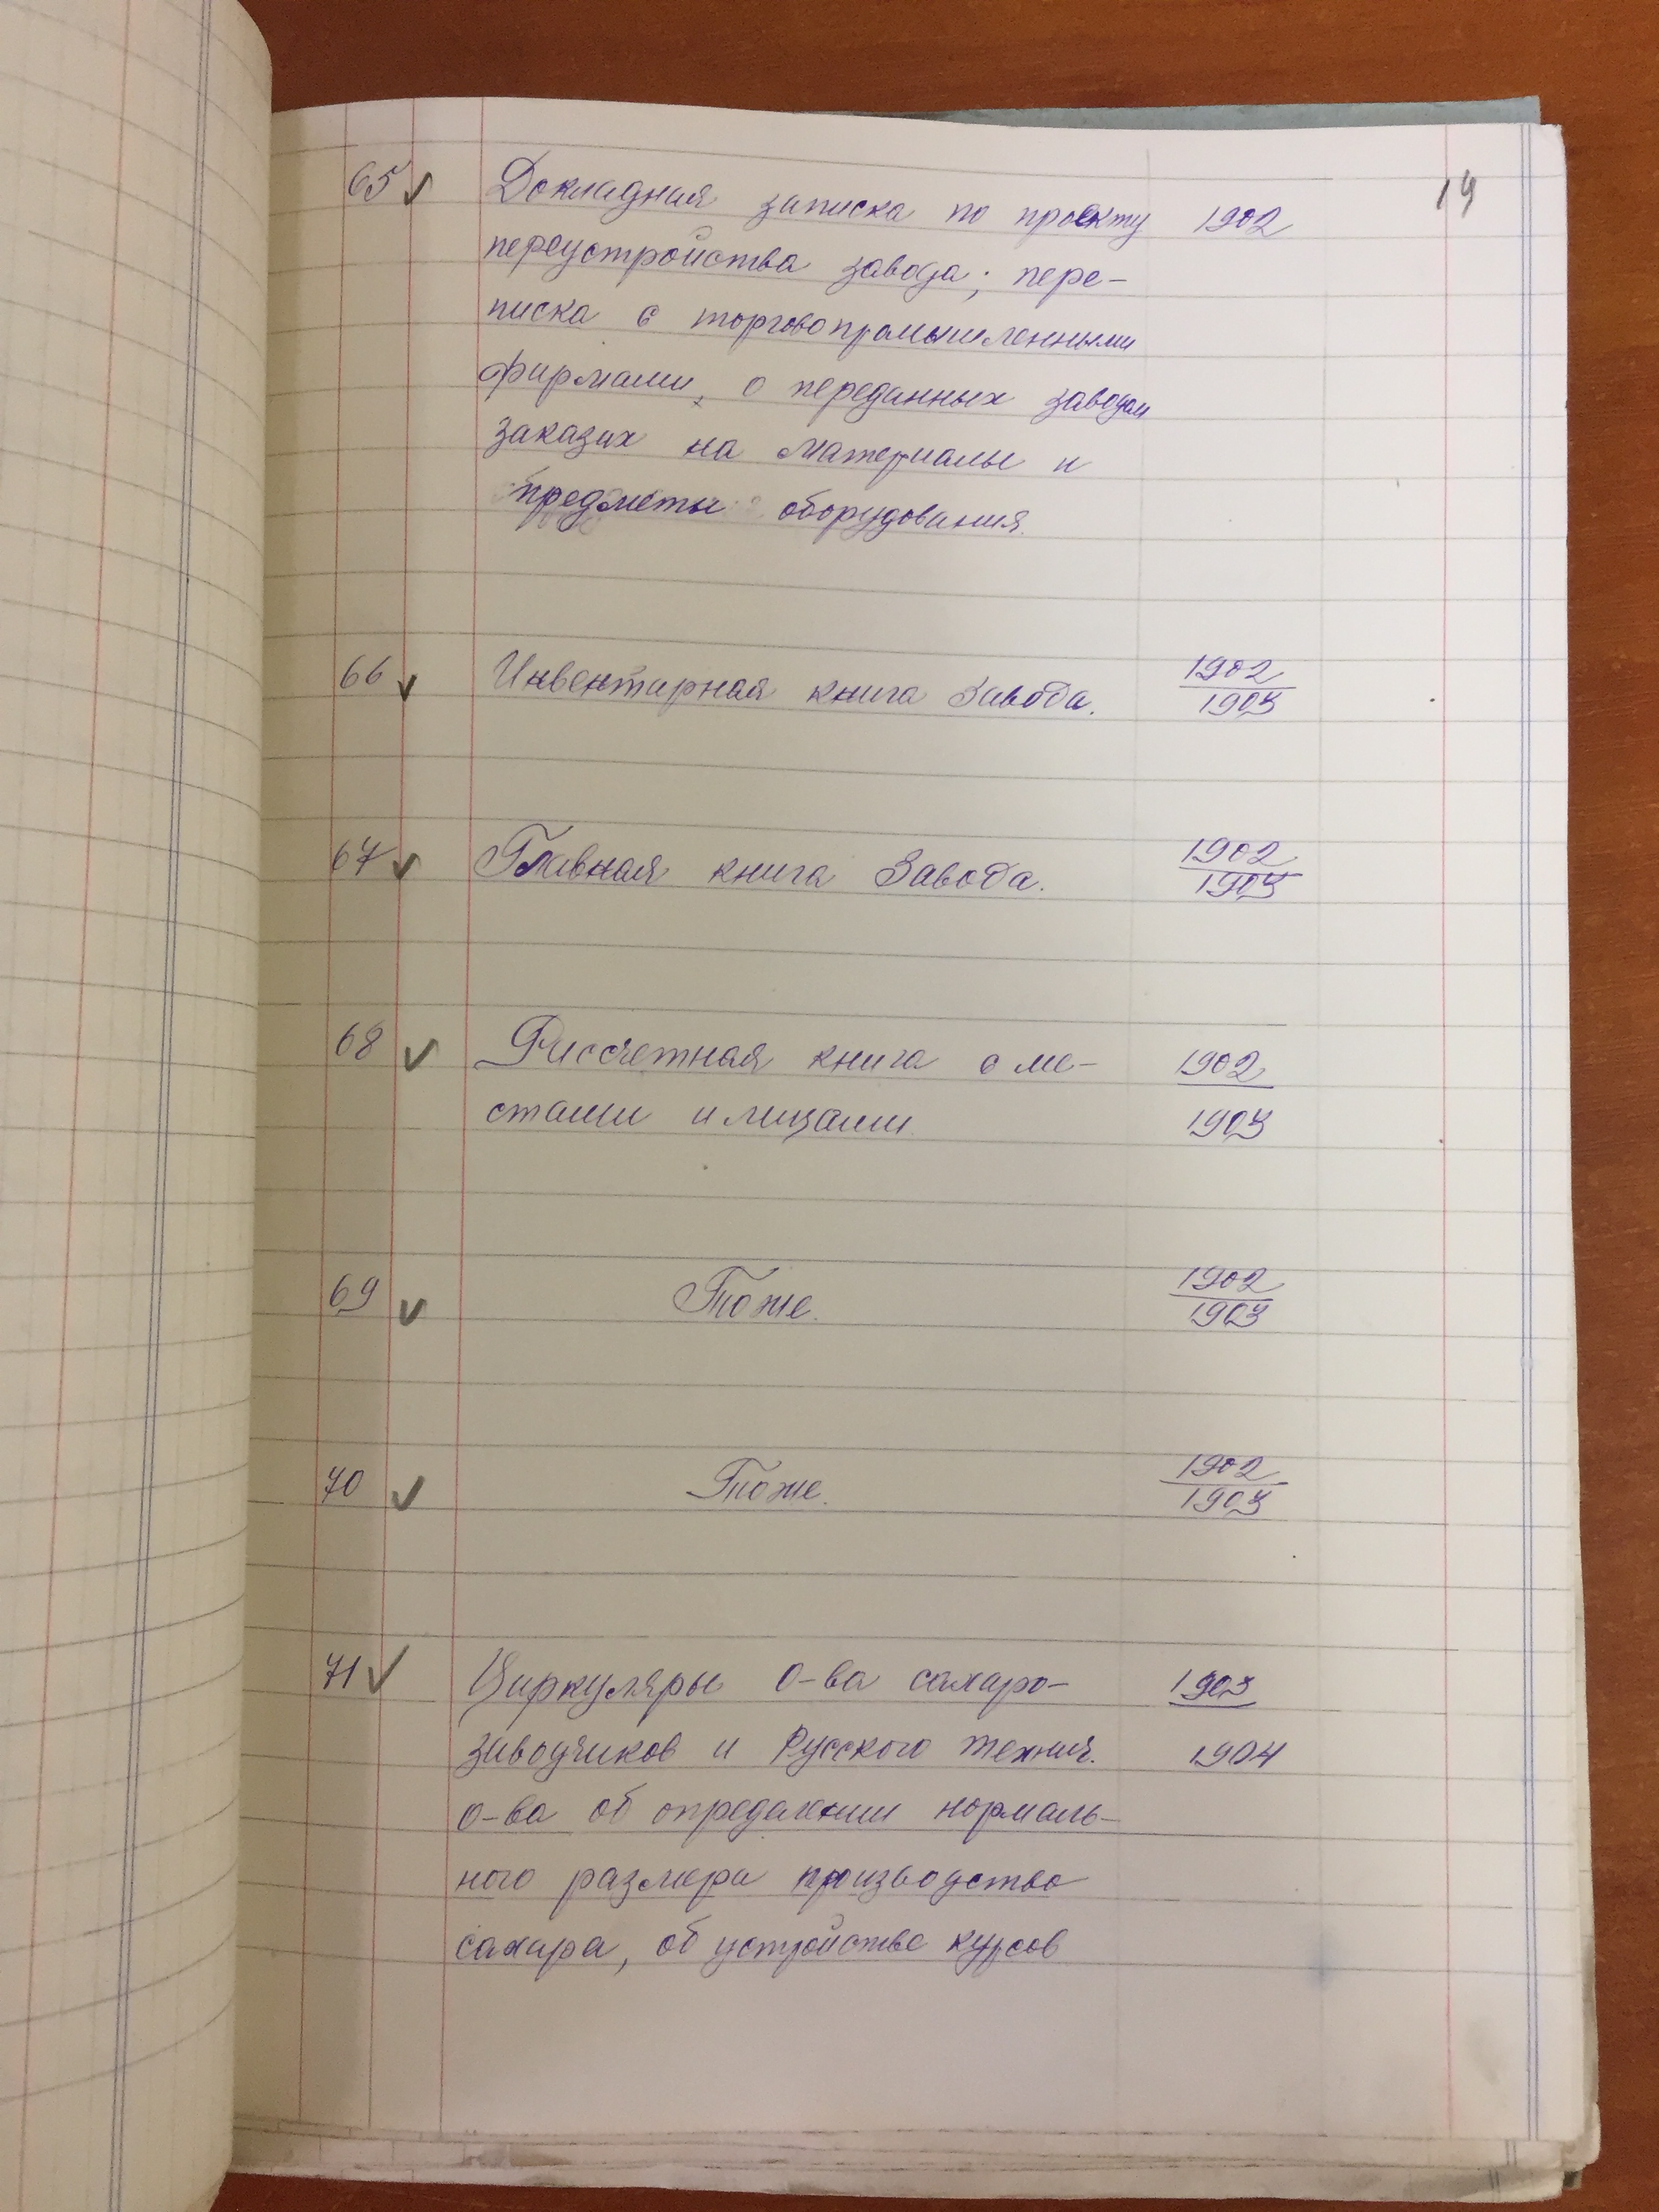 14
65 ✓ Докладная записка по проекту 1902
переустройства завода; пере-
писка с торговопромышленными
фирмами, о переданных заводам
заказах на материалы и
предметы оборудования.
66 ✓ Инвентарная книга Завода. 1902
1903
67 ✓ Главная книга Завода. 1902
1903
68 ✓ Рассчетная книга с ме- 1902
стами и лицами 1903
69 ✓ Тоже. 1902
1903
70 ✓ Тоже. 1902
1903
71 ✓ Циркуляры о-ва сахаро- 1903
заводчиков и Русского технич. 1904
о-ва об определении нормаль-
ного размера производства
сахара, об устройстве курсов